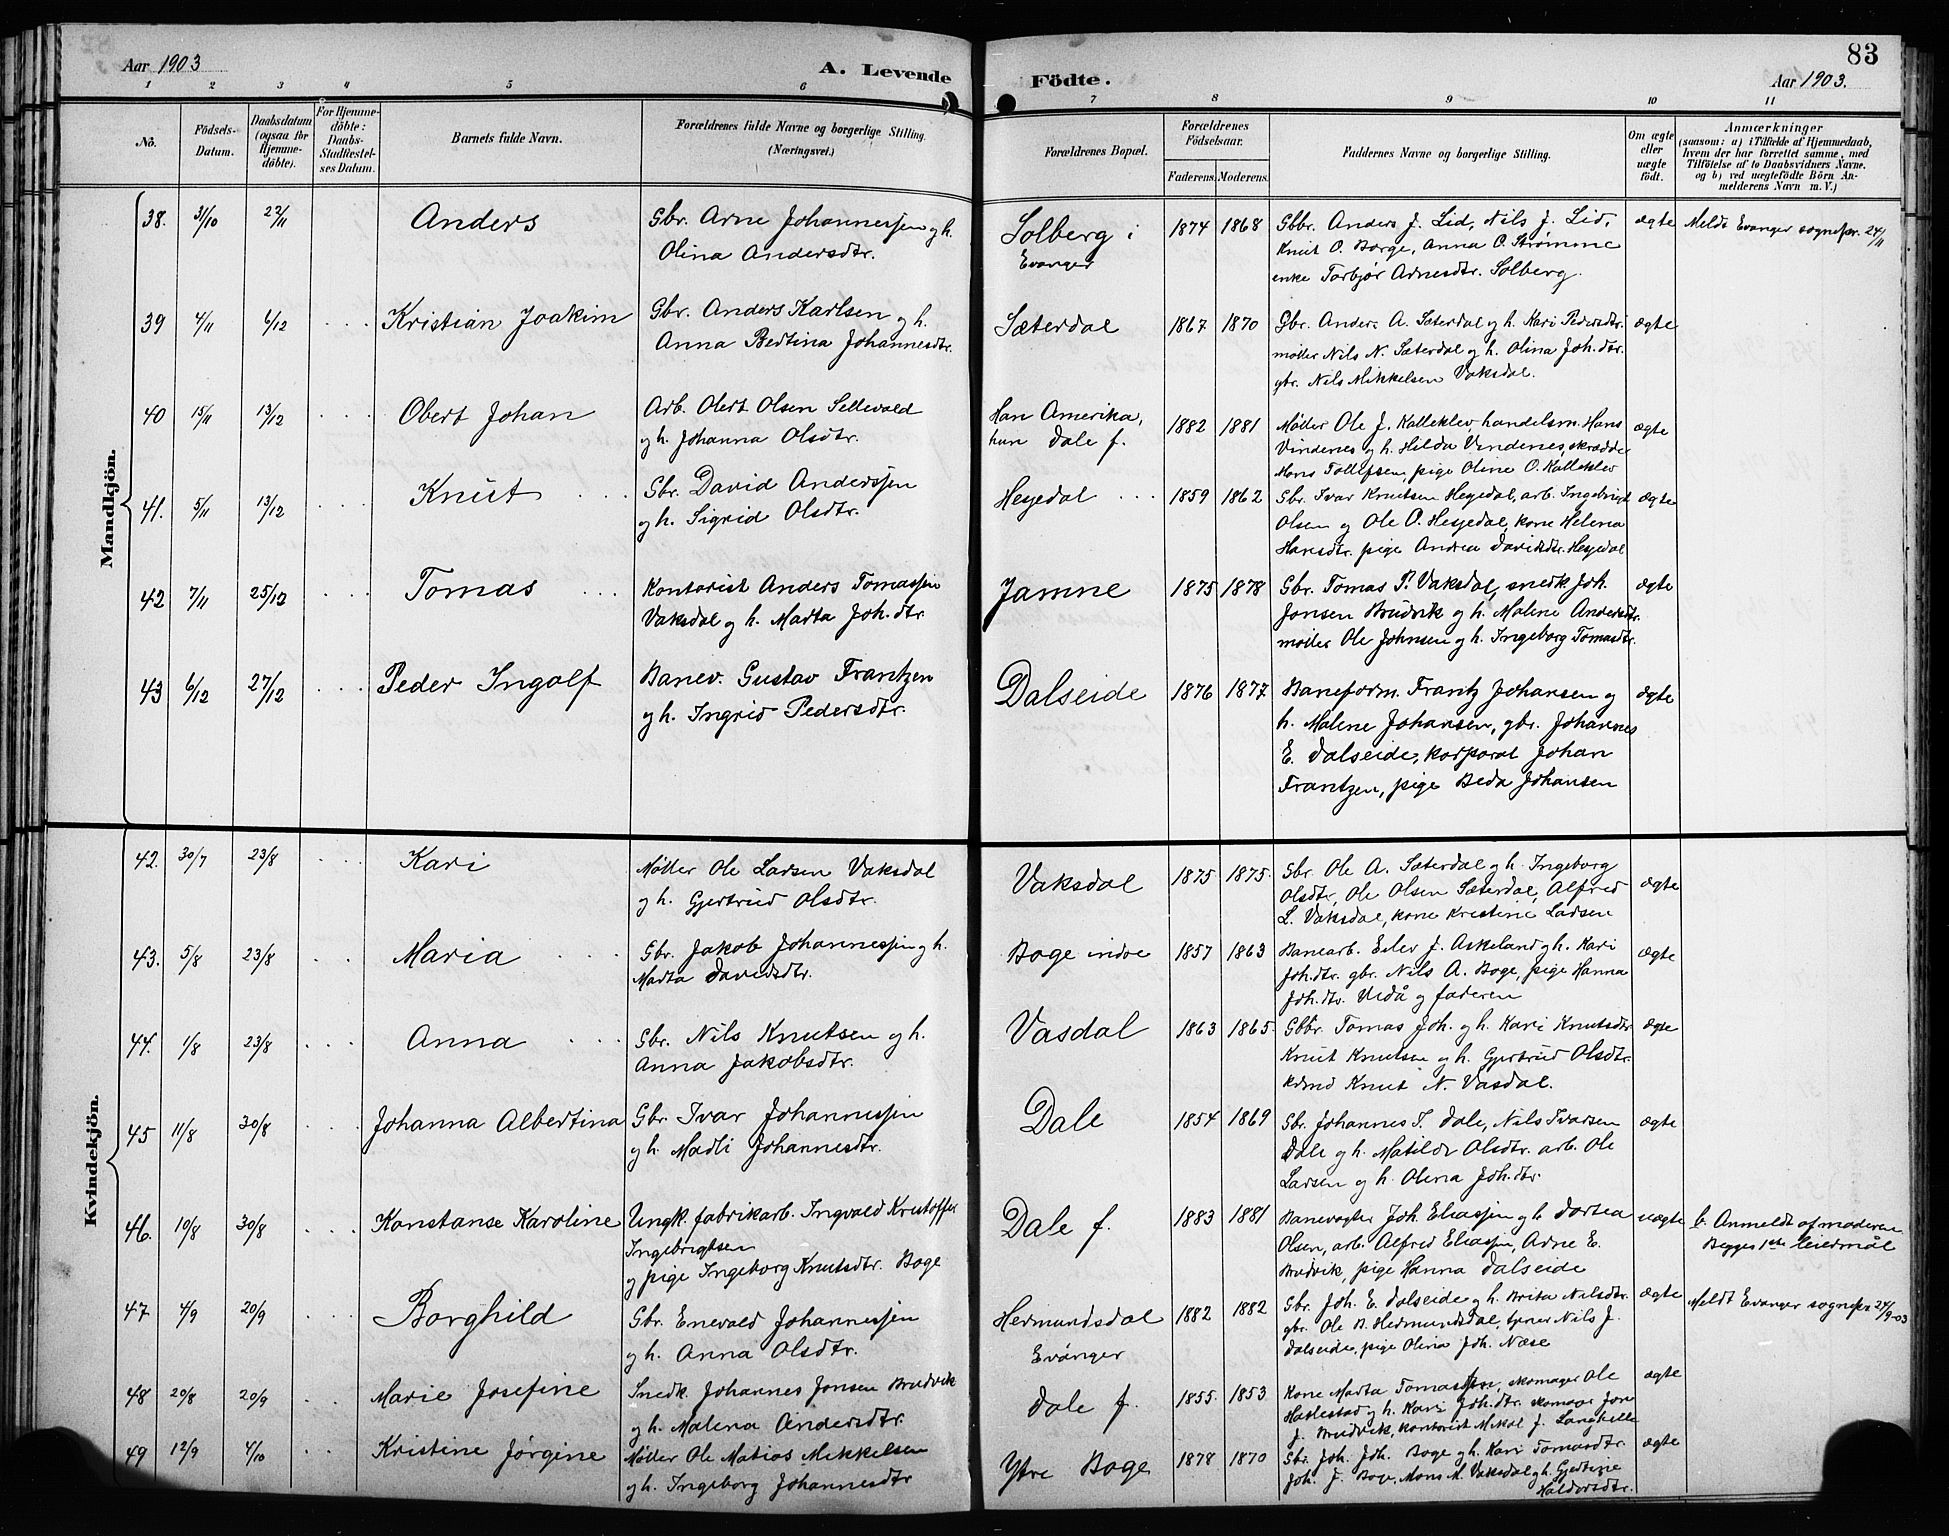 83
Aar 1903
A. Levende Födte.
Aar 1903.
1 2 3 4 5 6 7 8 9 10 11
No.
Födsels-Datum.
Daabsdatum (ogsaa för Hjemme-döbte).
For Hjemme-döbte: Daabs-Stadfæstel-ses Datum.
Barnets fulde Navn.
Forældrenes fulde Navne og borgerlige Stilling. (Næringsvei.)
Forældrenes Bopæl.
Forældrenes Födselsaar.
Faderens. Moderens.
Faddernes Navne og borgerlige Stilling.
Om ægte eller uægte födt.
Anmærkninger
(saasom: a) i Tilfælde af Hjemmedaab,
hvem der har forrettet samme, med
Tilföielse af to Daabsvidners Navne.
og b) ved uægtefödte Börn An-
melderens Navn m. V.)
Mandkjön.
38. 31/10 22/11 Anders
Gbr. Arne Johannessen og h.
Olina Andersdtr.
Solberg i
Evanger
1874 1868
Gbbr. Anders J. Lid, Nils J. Lid,
Knut O. Børge, Anna O. Strømme
enke Torbjør Arnesdtr. Solberg.
ægte
Meldt Evanger sognepr. 24/11
39 4/11 6/12 Kristian Joakim
Gbr. Anders Karlsen og h.
Anna Bertina Johannesdtr.
Sæterdal
1867 1870
Gbr. Anders A. Sæterdal og h. Kari Pedersdtr.
møller Nils N. Sæterdal og h. Olina Joh.dtr.
gbr. Nils Mikkelsen Vaksdal.
ægte
40 15/11 13/12 Obert Johan
Arb. Olert Olsen Sellevold
og h. Johanna Olsdtr.
Han Amerika,
hun Dale f.
1882 1881
Møller Ole J. Kalleklev handelsm. Hans
Vindenes og h. Hilda Vindenes, skrædder
Mons Tollefsen pige Oline O. Kalleklev
ægte
41. 5/11 13/12 Knut
Gbr. David Anderssen
og h. Sigrid Olsdtr.
Hesjedal
1859 1862
Gbr. Ivar Knutsen Hesjedal, arb. Ingebrigt
Olsen og Ole O. Hesjedal, kone Helena
Hansdtr. pige Andrea Davidsdtr. Hesjedal
ægte
42 7/11 25/12 Tomas
Kontorist Anders Tomassen
Vaksdal og h. Marta Joh.dtr.
Jamne
1875 1878
Gbr. Tomas P. Vaksdal, snedk. Joh.
Jonsen Brudvik og h. Malene Andersdtr.
møller Ole Johnsen og h. Ingeborg Tomasdtr.
ægte
43 6/12 27/12 Peder Ingolf
Banev. Gustav Frantzen
og h. Ingrid Pedersdtr.
Dalseide
1876 1877
Baneform. Frantz Johansen og
h. Malene Johansen, gbr. Johannes
E. Dalseide, korporal Johan
Frantzen, pige Beda Johansen
ægte
Kvindekjön.
42. 30/7 23/8 Kari
Møller Ole Larsen Vaksdal
og h. Gjertrud Olsdtr.
Vaksdal
1875 1875.
Gbr. Ole A. Sæterdal og h. Ingeborg
Olsdtr, Ole Olsen Sæterdal, Alfred
L. Vaksdal, kone Kristine Larsen
ægte
43. 5/8 23/8 Maria
Gbr. Jakob Johannessen og h.
Marta Davidsdtr.
Boge indre
1857 1863
Banearb. Eilev J. Askeland og h. Kari
Joh.dtr. gbr. Nils A. Boge, pige Hanna
Joh.dtr. Urdå og faderen
ægte
44. 1/8 23/8 Anna
Gbr. Nils Knutsen og h.
Anna Jakobsdtr.
Vasdal
1863 1865.
Gbbr. Tomas Joh. og h. Kari Knutsdtr
Knut Knutsen og h. Gjertrud Olsdtr.
Knut N. Vasdal.
ægte
45 11/8 30/8 Johanna Albertina
Gbr. Ivar Johannessen
og h. Madli Johannesdtr.
Dale
1854 1869
Gbr. Johannes I. Dale, Nils Ivarsen
Dale og h. Matilde Olsdtr. arb. Ole
Larsen og h. Olena Joh.dtr.
ægte
46. 10/8 30/8 Konstanse Karoline
Ungk. fabrikarb. Ingvald Kristoffer
Ingebrigtsen
og pige Ingeborg Knutsdtr. Boge
Dale f.
1883 1881
Banevogter Joh. Eliassen og h. Dortea
Olsen, arb. Alfred Eliassen, Arne E.
Brudvik, pige Hanna Dalseide
uægte
b. Anmeldt af moderen
Begges 1ste leiermål
47 4/9 20/9 Borghild
Gbr. Enevald Johannessen
og h. Anna Olsdtr.
Hermundsdal
Evanger
1882 1882
Gbr. Joh. E. Dalseide og h. Brita Nilsdtr.
gbr. Ole B. Hermundsdal, Nils J.
Dalseide, pige Olina Joh. Næse
ægte
Meldt Evanger sognepr. 24/9-03
48 20/8 20/9 Marie Josefine
Snedk. Johannes Jonsen Brudvik
og h. Malena Andersdtr.
Dale f.
1855. 1853
Kone Marta skomager Ole
Hatlestad og h. Kari Joh.dtr. skomager Jon
J. Brudvik, kontorist Mikal J. Langhelle
ægte
49 12/9 4/10 Kristine Jørgine
Møller Ole Matias Mikkelsen
og h. Ingeborg Johannesdtr
Ytre Boge
1878 1870
Gbr. Joh. Joh. Boge og h. Kari Tomasdtr.
Joh. J. Boge, Mons M. Vaksdal og h. Gjertine
Haldorsdtr.
ægte